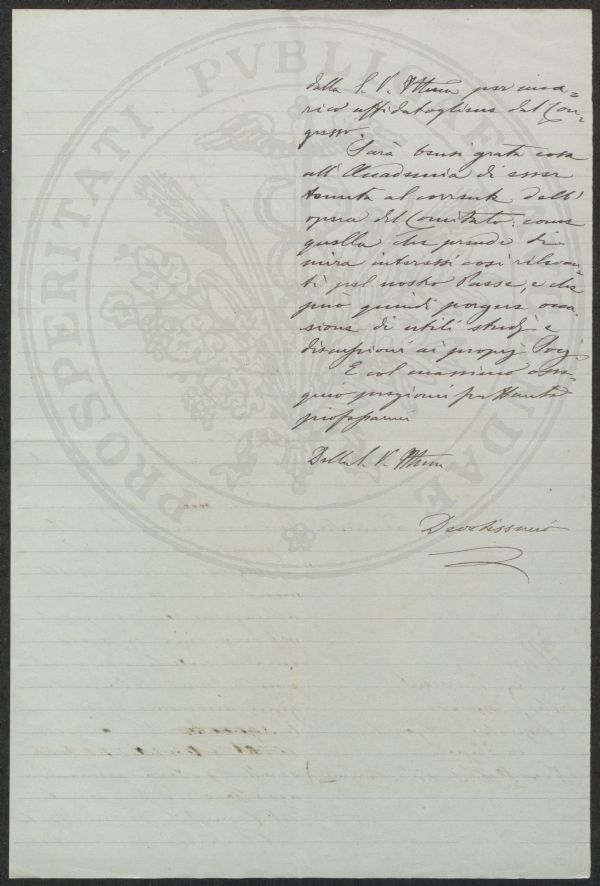 PROSPERITATI PUBLICAE AUGENDAE
dalla S. V. Illma per inca=
rico affidatogliene dal Con=
gresso.
Sarà bensì grata cosa
all'Accademia di esser
tenuta al corrente dell'
opera del Comitato, come
quella che prende di
mira interessi così rilevan=
ti pel nostro Paese, e che
può quindi porgere occa=
sione di utili studj e
discussioni ai proprj Socj.
E col massimo osse=
quio pregiomi frattanto
professarmi
Della S. V. Illma
Devotissimo